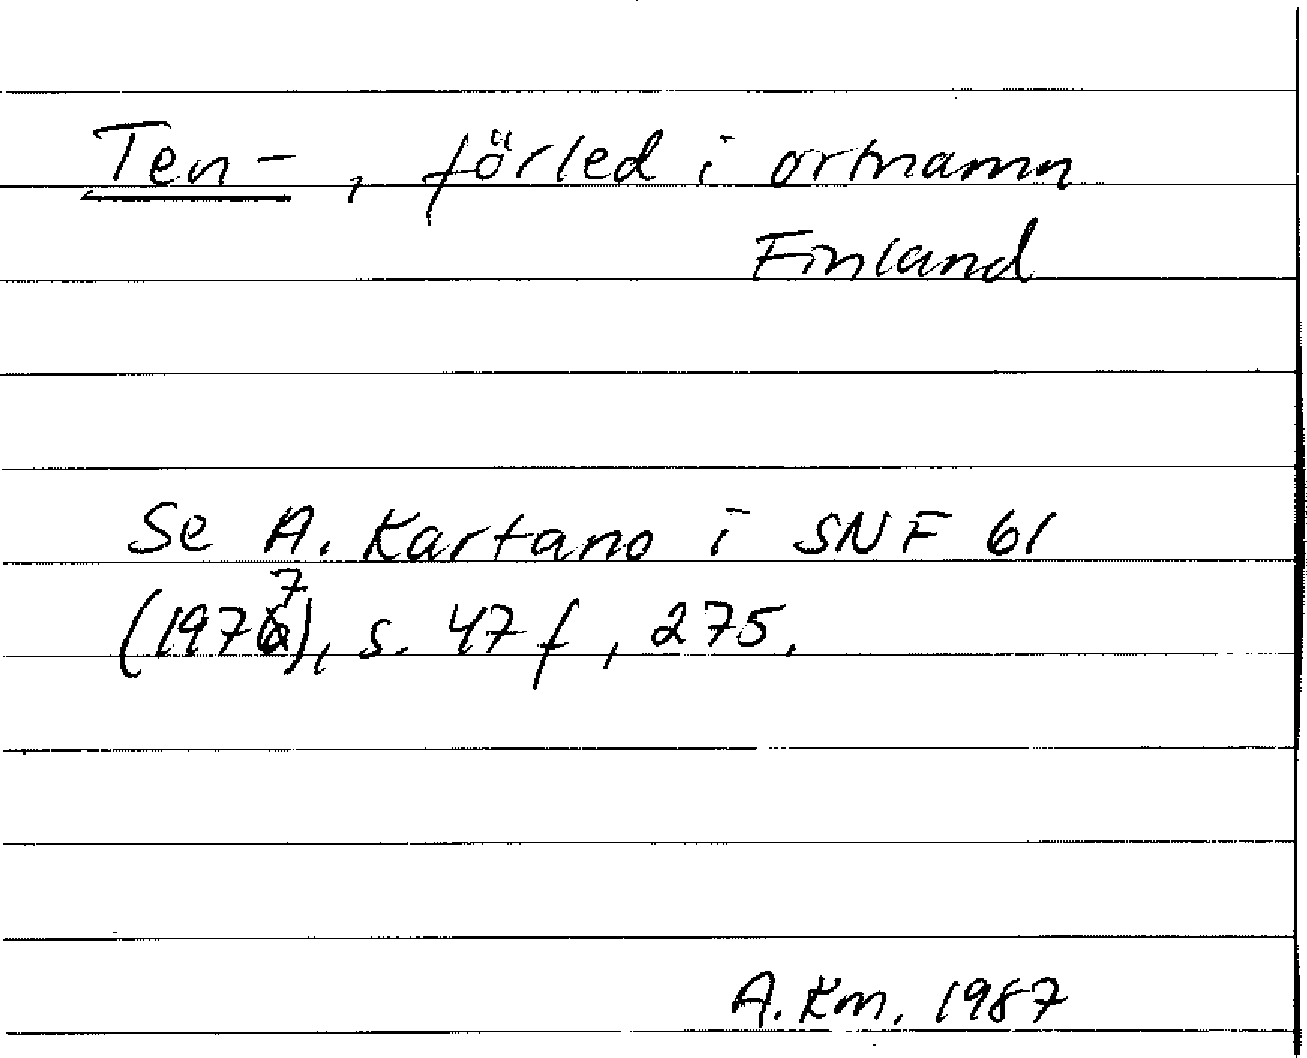 Ten-, förled i ortnamn
Finland
Se A. Kartano i SNF 61
(1977), s. 47 f, 275.
A. Km. 1987